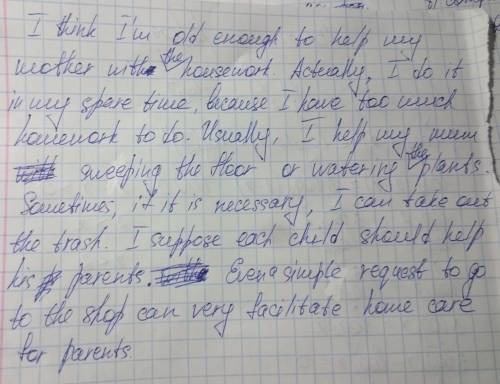 I think I'm old enough to help my
mother with the housework. Actually, I do it
in my spare time, because I have too much
homework to do. Usually, I help my mum
sweeping the floor or watering the plants.
Sometimes, if it is necessary, I can take out
the trash. I suppose each child should help
his parents. Even a simple request to go
to the shop can very facilitate home care
for parents.